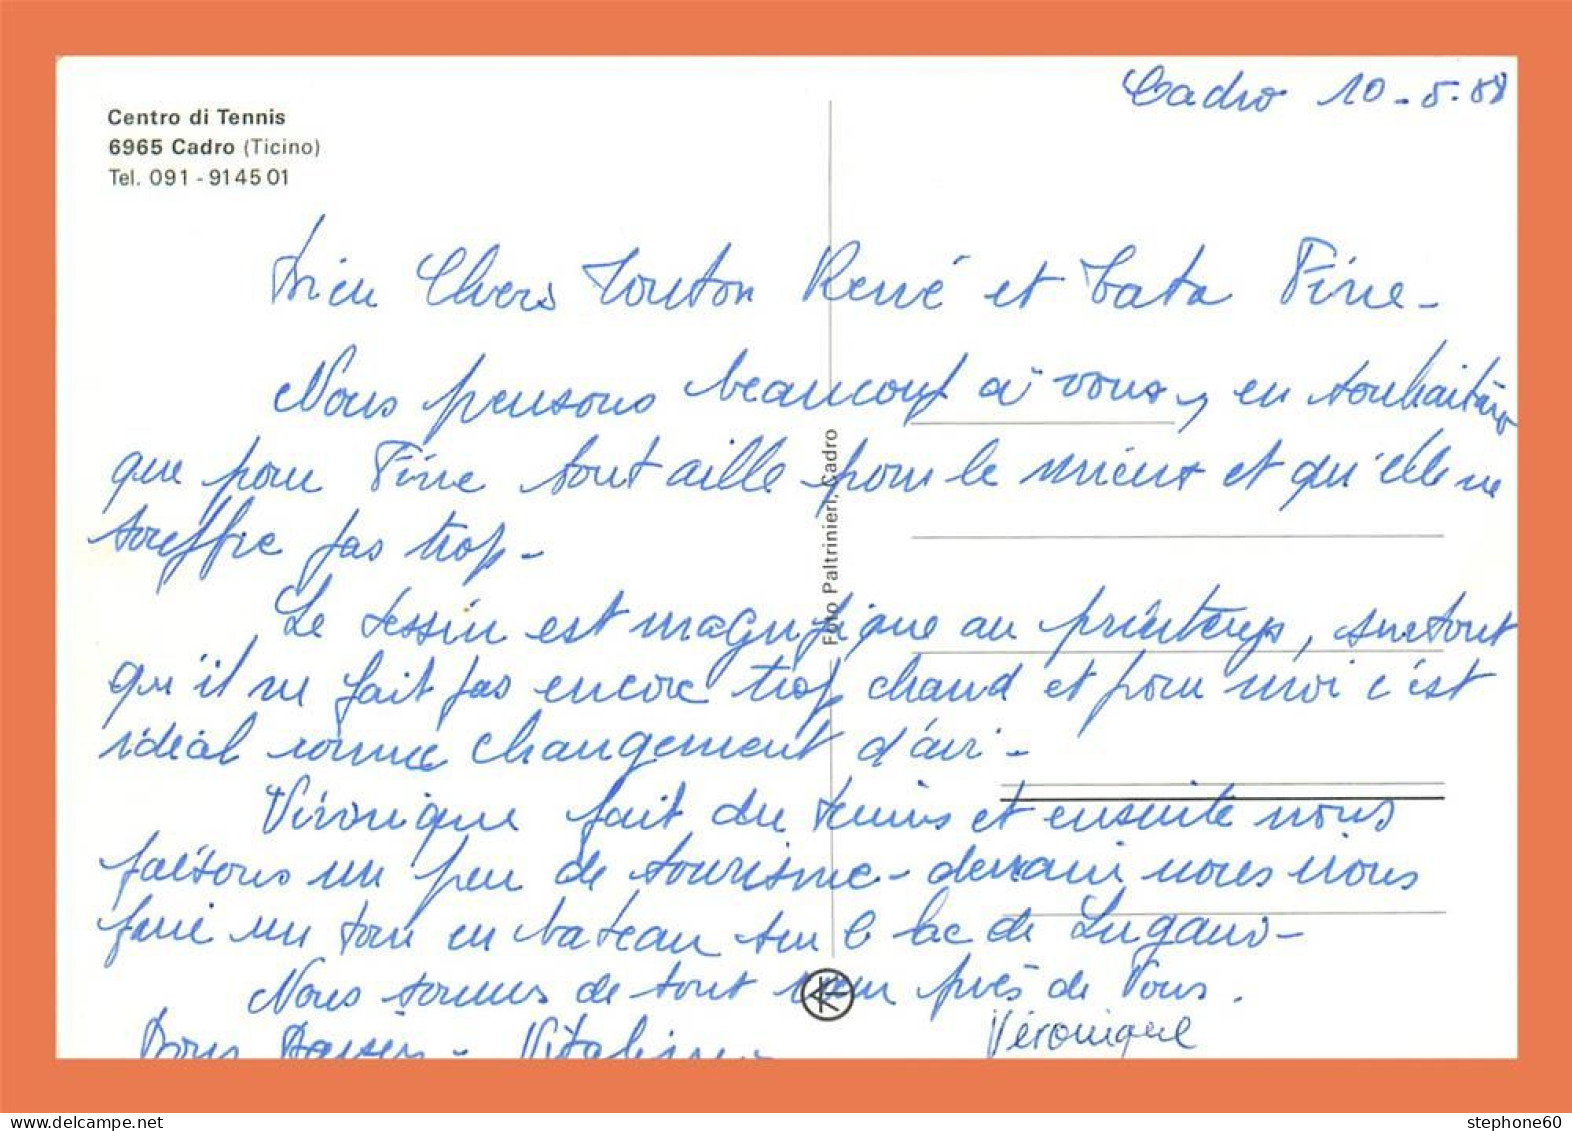 Centro di Tennis
6965 Cadro (Ticino)
Tel. 091 - 91 45 01
Cadro 10-5.88
Bien Chers Tonton René et Tata Fine -
Nous pensons beaucoup à vous, en souhaitant
que pour Fine tout aille pour le mieux et qu'elle ne
souffre pas trop -
Le Tessin est magnifique au printemps, surtout
qu'il ne fait pas encore trop chaud et pour moi c'est
idéal comme changement d'air -
Véronique fait du tennis et ensuite nous
faisons un peu de tourisme - demain nous irons
faire un tour en bateau sur le lac de Lugano -
Nous sommes de tout cœur près de Vous.
Bons Baisers - Vitaline
Véronique
Foto Paltrinieri, Cadro
stephone60